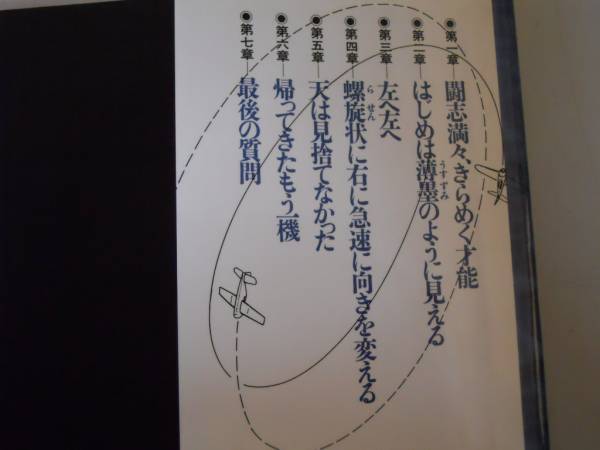 ●第一章―闘志満々、きらめく才能
●第二章―はじめは薄墨のように見える
うすずみ
●第三章―左へ左へ
●第四章―螺旋状に右に急速に向きを変える
らせん
●第五章―天は見捨てなかった
●第六章―帰ってきたもう一機
●第七章―最後の質問